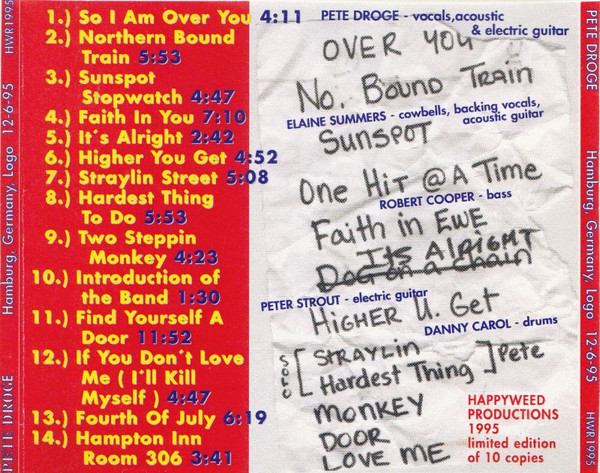 1.) So I Am Over You 4:11
2.) Northern Bound
Train 5:53
3.) Sunspot
Stopwatch 4:47
4.) Faith In You 7:10
5.) It's Alright 2:42
6.) Higher You Get 4:52
7.) Straylin Street 5:08
8.) Hardest Thing
To Do 5:53
9.) Two Steppin
Monkey 4:23
10.) Introduction of
the Band 1:30
11.) Find Yourself A
Door 11:52
12.) If You Don't Love
Me ( I'll Kill
Myself ) 4:47
13.) Fourth Of July 6:19
14.) Hampton Inn
Room 306 3:41
PETE DROGE - vocals,acoustic
& electric guitar
OVER YOU
No. Bound Train
ELAINE SUMMERS - cowbells, backing vocals,
acoustic guitar
SUNSPOT
One Hit @ A Time
ROBERT COOPER - bass
Faith in EWE
ITS AlRiGHT
Dog on a Chain
PETER STROUT - electric guitar
HiGHER U. Get
DANNY CAROL - drums
SOLO [ STRAYLiN ] Pete
Hardest Thing
MONKEY
DOOR
LOVE ME
HAPPYWEED
PRODUCTIONS
1995
limited edition
of 10 copies
PETE DROGE Hamburg, Germany, Logo 12-6-95 HWR1995
PETE DROGE Hamburg, Germany, Logo 12-6-95 HWR1995